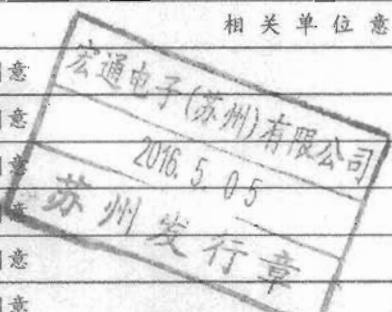 相关单位意
意
宏通电子(苏州)有限公司
意
2016.5.05
意
苏州发行章
意
意
意